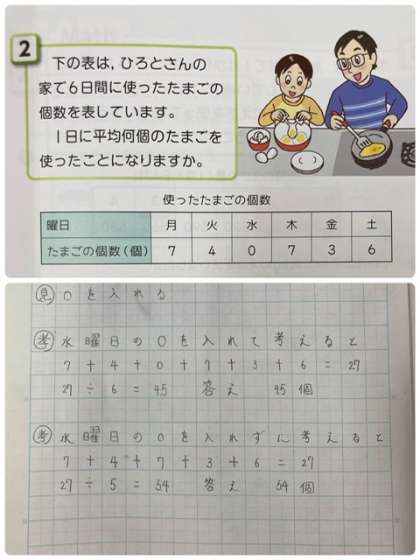 2
下の表は,ひろとさんの
家で6日間に使ったたまごの
個数を表しています。
1日に平均何個のたまごを
使ったことになりますか。
使ったたまごの個数
曜日 月 火 水 木 金 土
たまごの個数(個) 7 4 0 7 3 6
見 0を入れる
考 水曜日の0を入れて考えると
7 + 4 + 0 + 7 + 3 + 6 = 27
27 ÷ 6 = 45 答え 45個
考 水曜日の0を入れずに考えると
7 + 4 + 7 + 3 + 6 = 27
27 ÷ 5 = 54 答え 54個